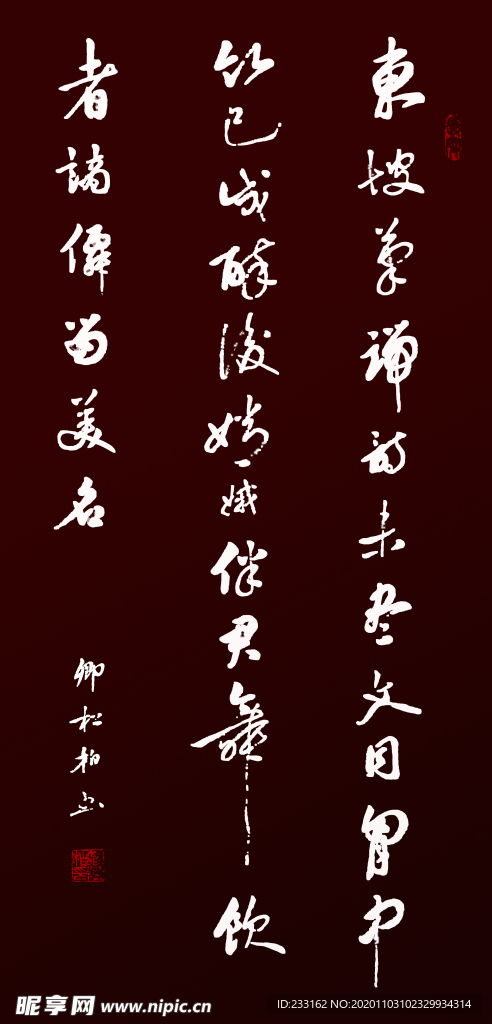 東坡禪詩未盡文同胸中
竹已成醉後嫦娥伴君舞飲
者謫僊留美名
卿松柏
昵享网 www.nipic.cn
ID:233162 NO:20201103102329934314